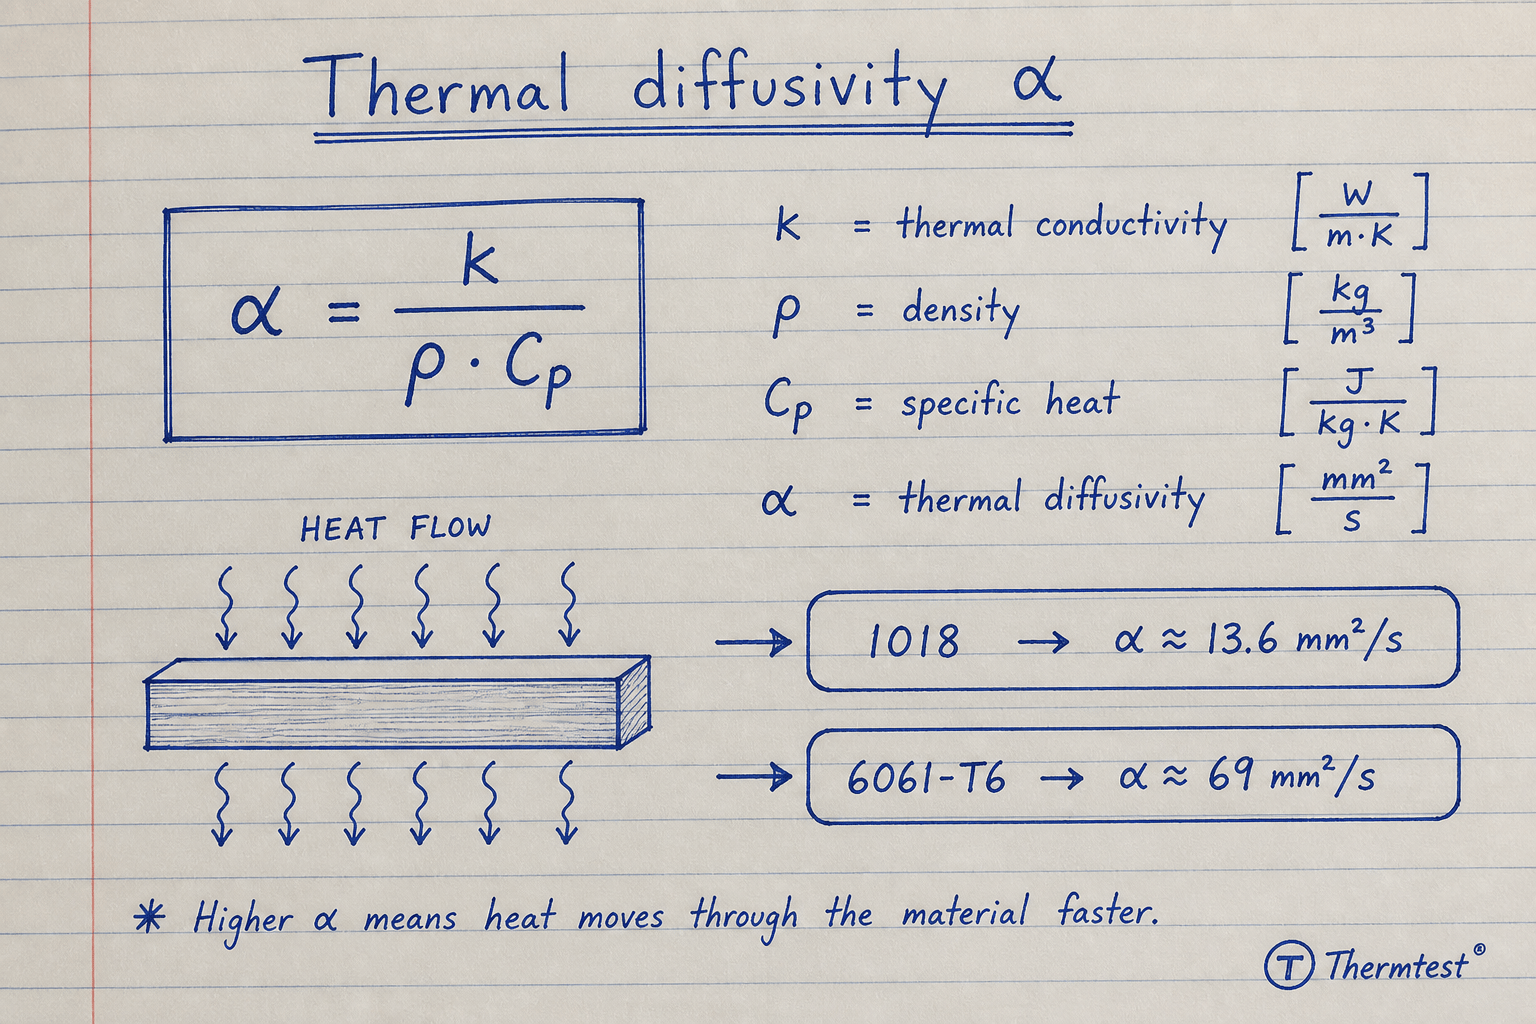 Thermal diffusivity α
α = k / ρ · Cp
k = thermal conductivity [W / m·K]
ρ = density [kg / m³]
Cp = specific heat [J / kg·K]
α = thermal diffusivity [mm² / s]
HEAT FLOW
→ 1018 → α ≈ 13.6 mm²/s
→ 6061-T6 → α ≈ 69 mm²/s
* Higher α means heat moves through the material faster.
T Thermtest®